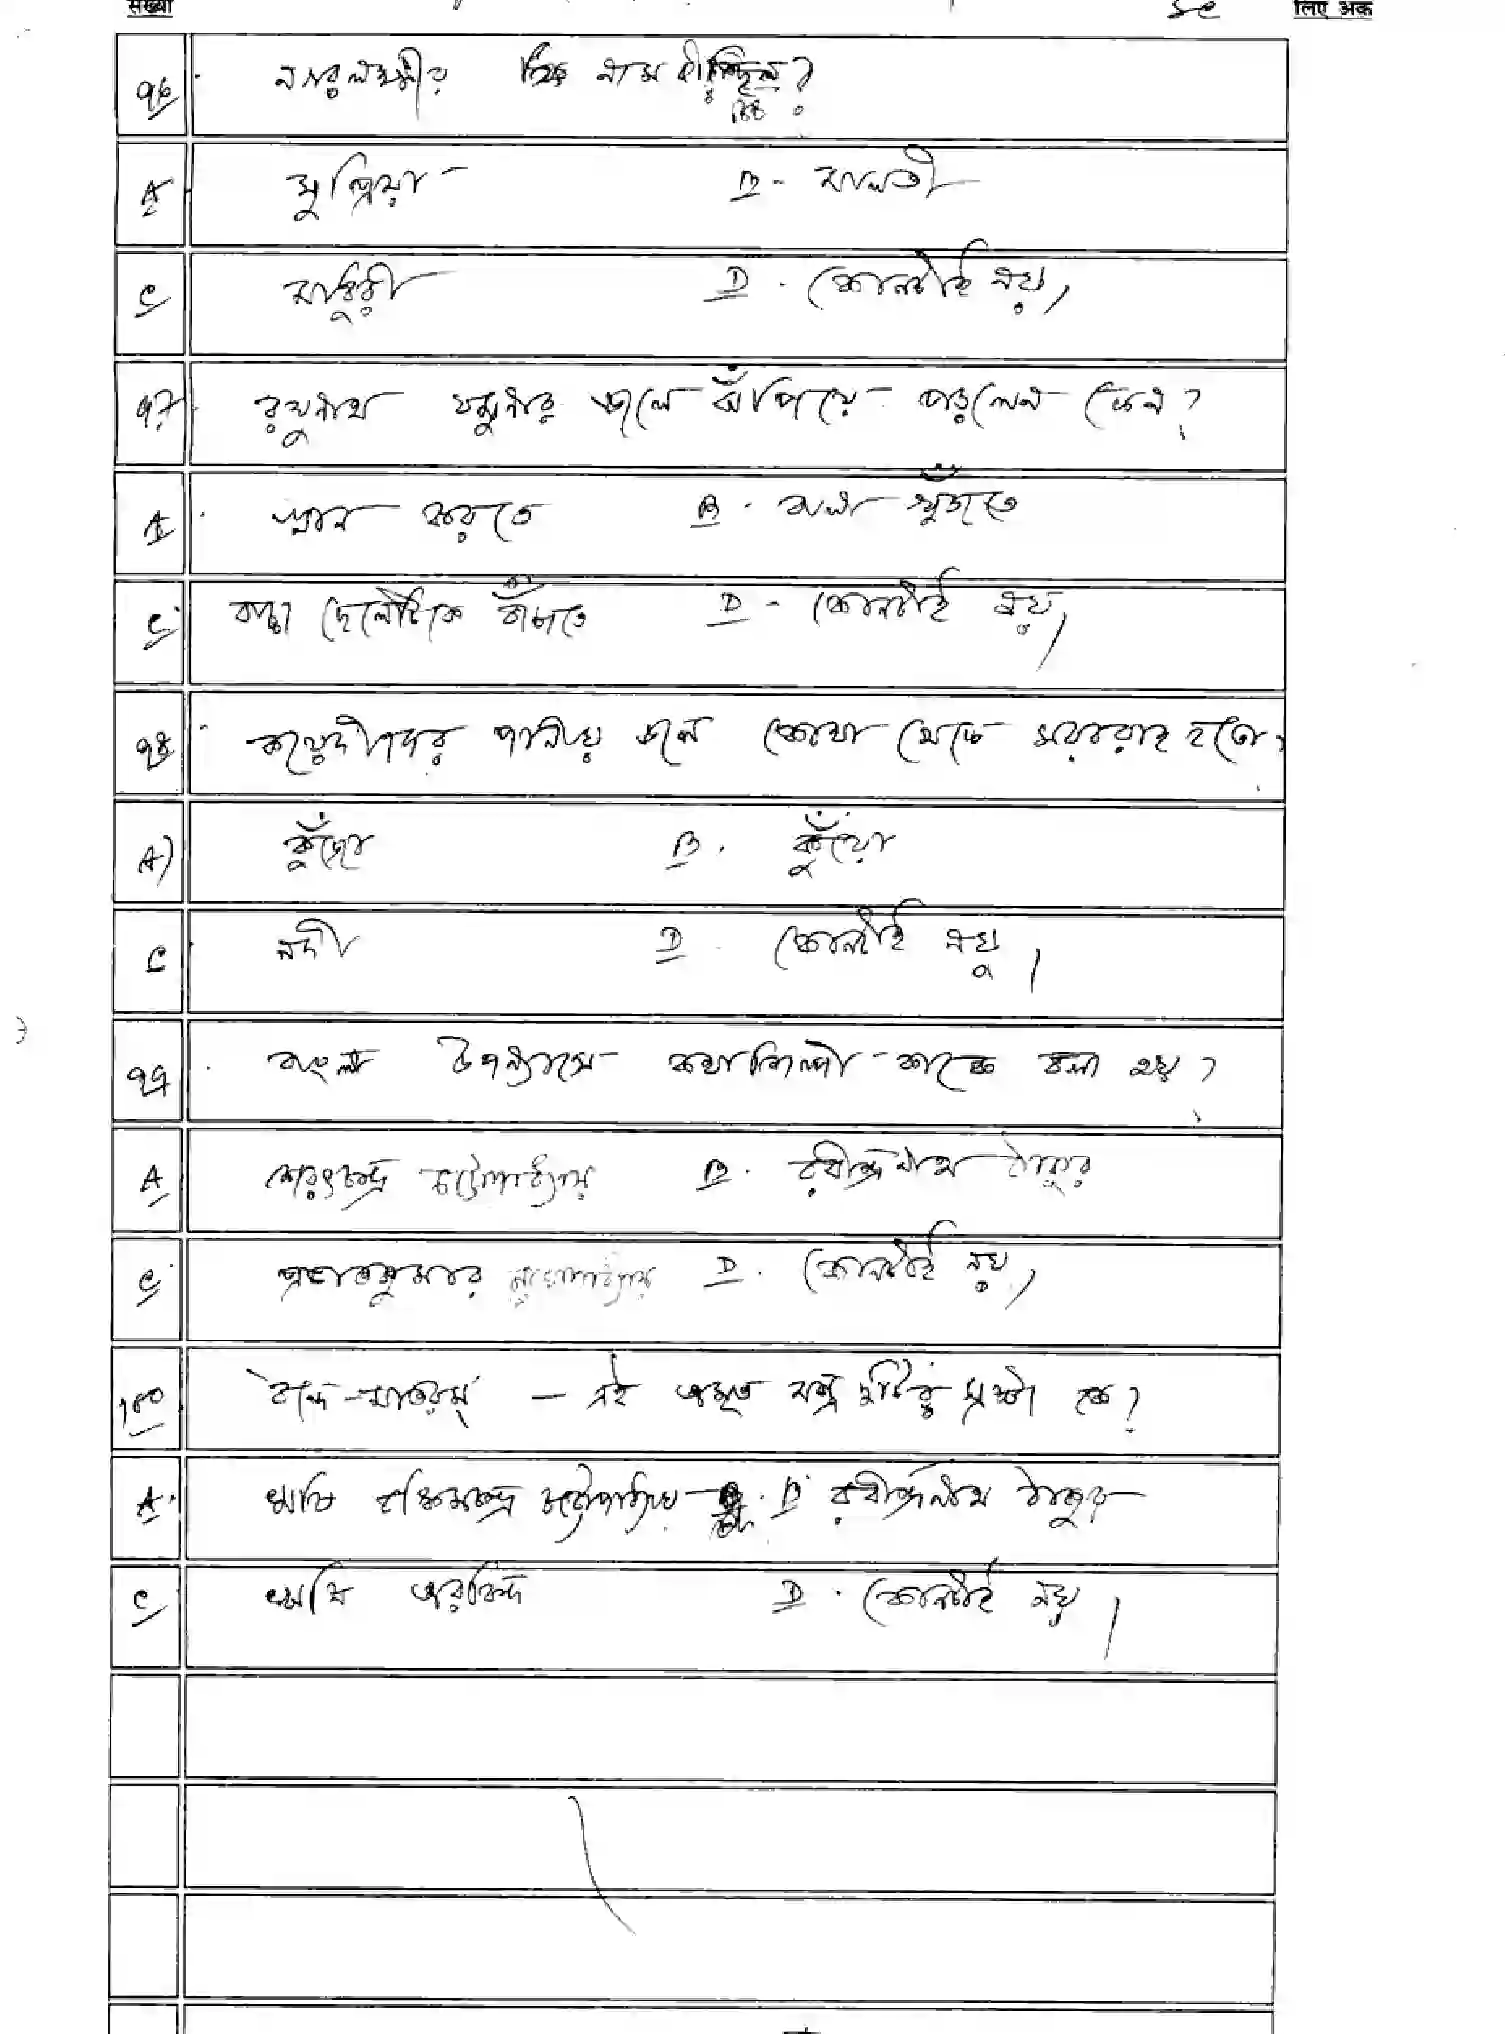 संख्या लिए अंक
৭৬ নগরলক্ষ্মীর নাম কী ছিল?
A সুপ্রিয়া B - মালতী
C মাধুরী D . কোনটাই নয়।
৭৭. রঘুনাথ যমুনার জলে ঝাঁপিয়ে পরলেন কেন?
A . স্নান করতে B . বালা খুঁজতে
C. বাচ্চা ছেলেটিকে বাঁচাতে D - কোনটাই নয়।
৭৮ . কয়েদীদের পানীয় জল কোথা থেকে সরবরাহ হতো?
A) কুঁজো B . কুঁয়ো
C নদী D কোনটাই নয়।
৭৯ . বাংলা উপন্যাসে কথাশিল্পী কাকে বলা হয়?
A শরৎচন্দ্র চট্টোপাধ্যায় B . রবীন্দ্রনাথ ঠাকুর
C. প্রভাতকুমার মুখোপাধ্যায় D . কোনটাই নয়।
১০০ বন্দে-মাতরম্ — এই অমৃত মন্ত্র টির স্রষ্টা কে?
A. ঋষি বঙ্কিমচন্দ্র চট্টোপাধ্যায় B রবীন্দ্রনাথ ঠাকুর
C ঋষি অরবিন্দ D . কোনটাই নয়।